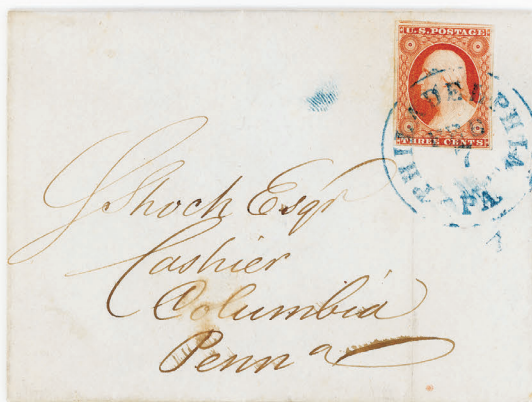 U.S. POSTAGE
THREE CENTS
PHILADELPHIA
7
PA
Shoch Esqr
Cashier
Columbia
Penna